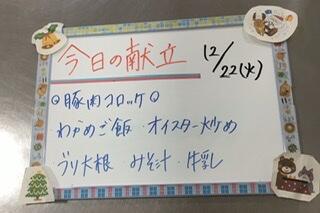 今日の献立
12/22(火)
◎豚肉コロッケ◎
わかめご飯・オイスター炒め
ブリ大根・みそ汁・牛乳